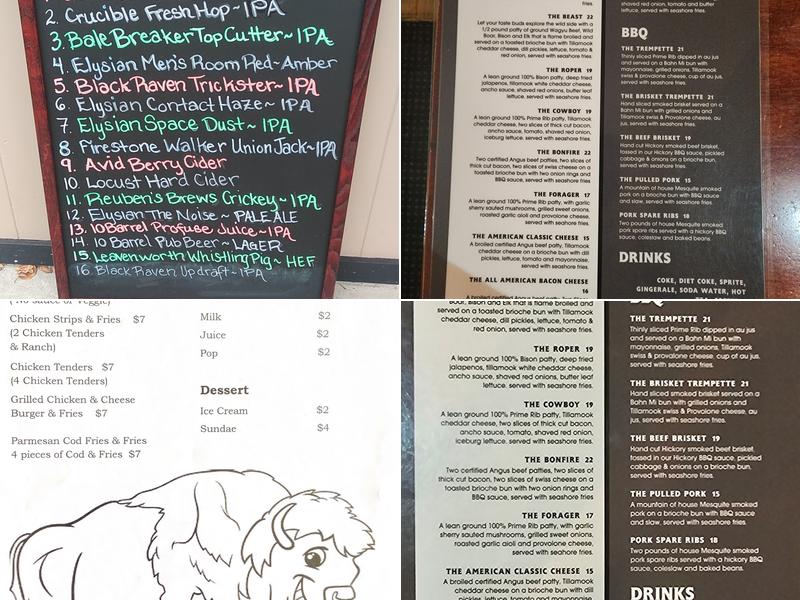 2. Crucible Fresh Hop ~ IPA
3. Bale Breaker Top Cutter ~ IPA
4. Elysian Men's Room Red ~ Amber
5. Black Raven Trickster ~ IPA
6. Elysian Contact Haze ~ IPA
7. Elysian Space Dust ~ IPA
8. Firestone Walker Union Jack ~ IPA
9. Avid Berry Cider
10. Locust Hard Cider
11. Reuben's Brews Crickey ~ IPA
12. Elysian The Noise ~ PALE ALE
13. 10 Barrel Profuse Juice ~ IPA
14. 10 Barrel Pub Beer ~ LAGER
15. Leavenworth Whistling Pig ~ HEF
16. Black Raven Updraft ~ IPA
THE BEAST 22
Let your taste buds explore the wild side with a
1/2 pound patty of ground Wagyu Beef, Wild
Boar, Bison and Elk that is flame broiled and
served on a toasted brioche bun with Tillamook
cheddar cheese, dill pickles, lettuce, tomato &
red onion, served with seashore fries.
THE ROPER 19
A lean ground 100% Bison patty, deep fried
jalapenos, tillamook white cheddar cheese,
ancho sauce, shaved red onions, butter leaf
lettuce. served with seashore fries.
THE COWBOY 19
A lean ground 100% Prime Rib patty, Tillamook
cheddar cheese, two slices of thick cut bacon,
ancho sauce, tomato, shaved red onion,
iceburg lettuce. served with seashore fries.
THE BONFIRE 22
Two certified Angus beef patties, two slices of
thick cut bacon, two slices of swiss cheese on a
toasted brioche bun with two onion rings and
BBQ sauce, served with seashore fries.
THE FORAGER 17
A lean ground 100% Prime Rib patty, with garlic
sherry sauted mushrooms, grilled sweet onions,
roasted garlic aioli and provolone cheese,
served with seashore fries.
THE AMERICAN CLASSIC CHEESE 15
A broiled certified Angus beef patty, Tillamook
cheddar cheese on a toasted brioche bun with dill
pickle, lettuce, tomato and mayonnaise,
served with seashore fries.
THE ALL AMERICAN BACON CHEESE
16
A broiled certified Angus beef patty, two
shaved red onion, tomato and butter
lettuce, served with seashore fries.
BBQ
THE TREMPETTE 21
Thinly sliced Prime Rib dipped in au jus
and served on a Bahn Mi bun with
mayonnaise, grilled onions, Tillamook
swiss & provalone cheese, cup of au jus,
served with seashore fries.
THE BRISKET TREMPETTE 21
Hand sliced smoked brisket served on a
Bahn Mi bun with grilled onions and
Tillamook swiss & Provalone cheese, au
jus, served with seashore fries.
THE BEEF BRISKET 19
Hand cut Hickory smoked beef brisket,
tossed in our Hickory BBQ sauce, pickled
cabbage & onions on a brioche bun,
served with seashore fries.
THE PULLED PORK 15
A mountain of house Mesquite smoked
pork on a brioche bun with BBQ sauce
and slaw, served with seashore fries.
PORK SPARE RIBS 18
Two pounds of house Mesquite smoked
pork spare ribs served with a hickory BBQ
sauce, coleslaw and baked beans.
DRINKS
COKE, DIET COKE, SPRITE,
GINGERALE, SODA WATER, HOT
(No Sauce or Veggie)
Chicken Strips & Fries $7
(2 Chicken Tenders
& Ranch)
Chicken Tenders $7
(4 Chicken Tenders)
Grilled Chicken & Cheese
Burger & Fries $7
Parmesan Cod Fries & Fries
4 pieces of Cod & Fries $7
Milk $2
Juice $2
Pop $2
Dessert
Ice Cream $2
Sundae $4
Boar, Bison and Elk that is flame broiled and
served on a toasted brioche bun with Tillamook
cheddar cheese, dill pickles, lettuce, tomato &
red onion, served with seashore fries.
THE ROPER 19
A lean ground 100% Bison patty, deep fried
jalapenos, tillamook white cheddar cheese,
ancho sauce, shaved red onions, butter leaf
lettuce. served with seashore fries.
THE COWBOY 19
A lean ground 100% Prime Rib patty, Tillamook
cheddar cheese, two slices of thick cut bacon,
ancho sauce, tomato, shaved red onion,
iceburg lettuce. served with seashore fries.
THE BONFIRE 22
Two certified Angus beef patties, two slices of
thick cut bacon, two slices of swiss cheese on a
toasted brioche bun with two onion rings and
BBQ sauce, served with seashore fries.
THE FORAGER 17
A lean ground 100% Prime Rib patty, with garlic
sherry sauted mushrooms, grilled sweet onions,
roasted garlic aioli and provolone cheese,
served with seashore fries.
THE AMERICAN CLASSIC CHEESE 15
A broiled certified Angus beef patty, Tillamook
cheddar cheese on a toasted brioche bun with dill
pickle, lettuce, tomato and mayonnaise,
BBQ
THE TREMPETTE 21
Thinly sliced Prime Rib dipped in au jus
and served on a Bahn Mi bun with
mayonnaise, grilled onions, Tillamook
swiss & provalone cheese, cup of au jus,
served with seashore fries.
THE BRISKET TREMPETTE 21
Hand sliced smoked brisket served on a
Bahn Mi bun with grilled onions and
Tillamook swiss & Provalone cheese, au
jus, served with seashore fries.
THE BEEF BRISKET 19
Hand cut Hickory smoked beef brisket,
tossed in our Hickory BBQ sauce, pickled
cabbage & onions on a brioche bun,
served with seashore fries.
THE PULLED PORK 15
A mountain of house Mesquite smoked
pork on a brioche bun with BBQ sauce
and slaw, served with seashore fries.
PORK SPARE RIBS 18
Two pounds of house Mesquite smoked
pork spare ribs served with a hickory BBQ
sauce, coleslaw and baked beans.
DRINKS